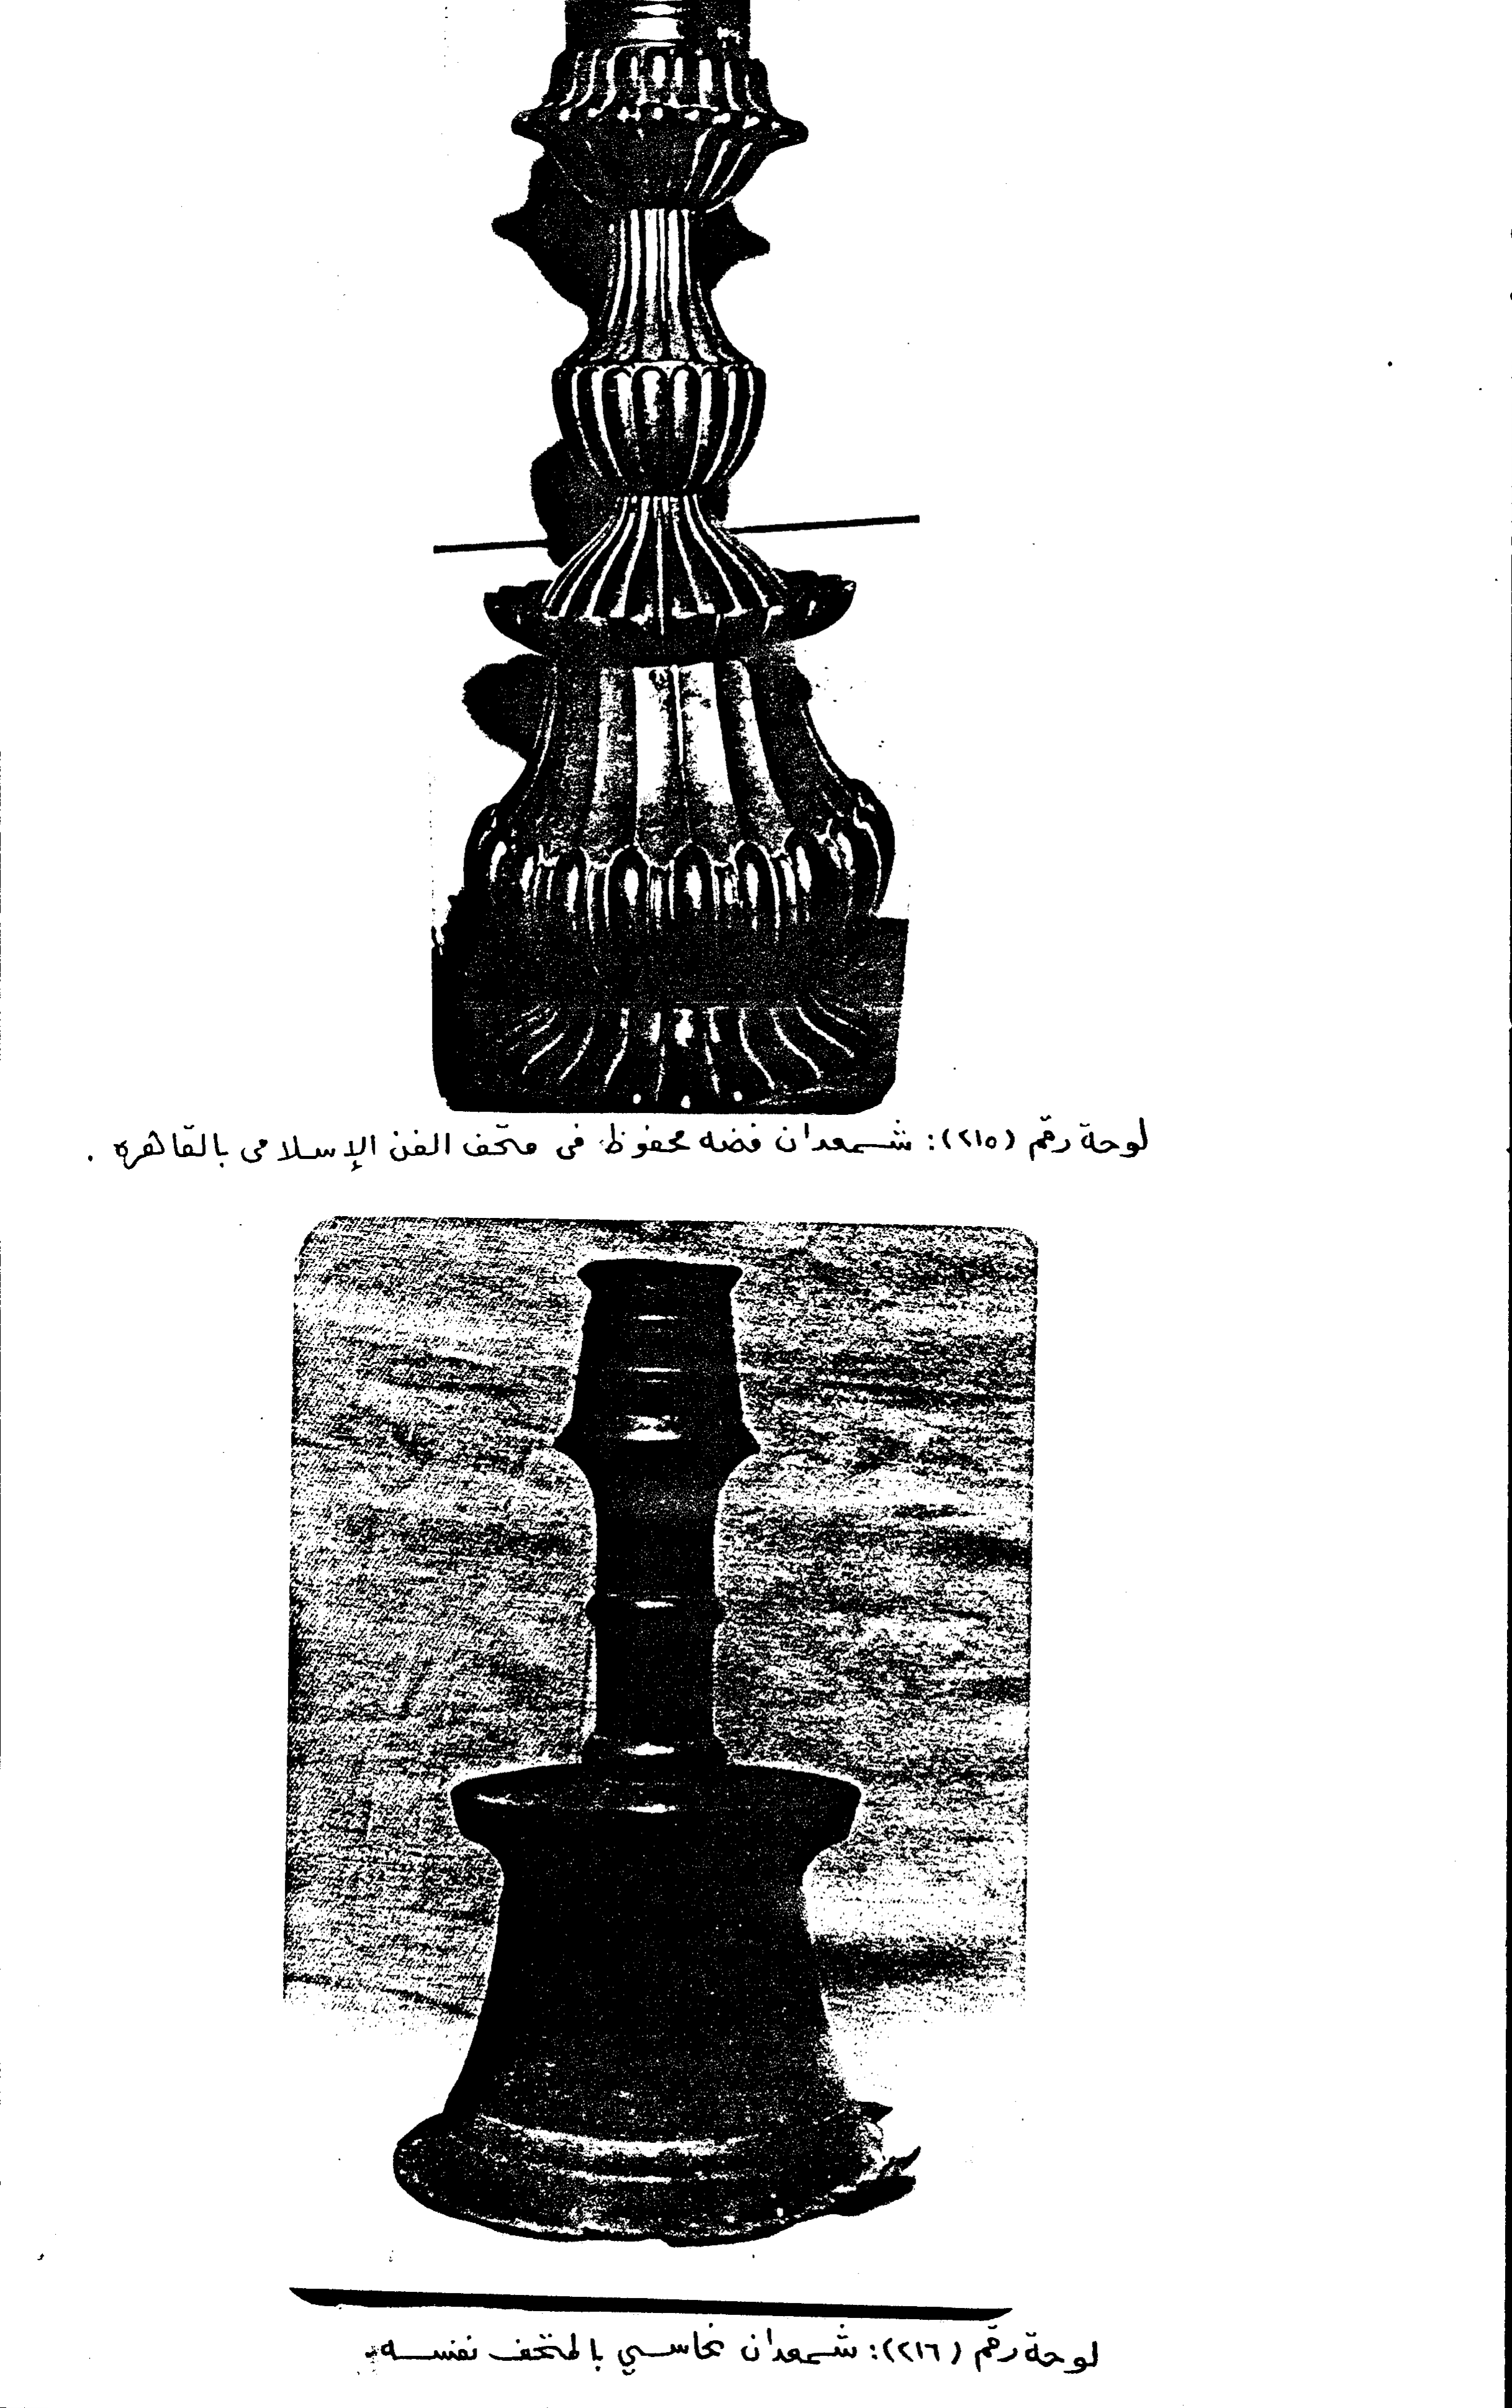 لوحة رقم (٢١٥): شمعدان فضه محفوظ فى متحف الفن الإسلامى بالقاهره .
لوحة رقم (٢١٦): شمعدان نحاسي بالمتحف نفسه.